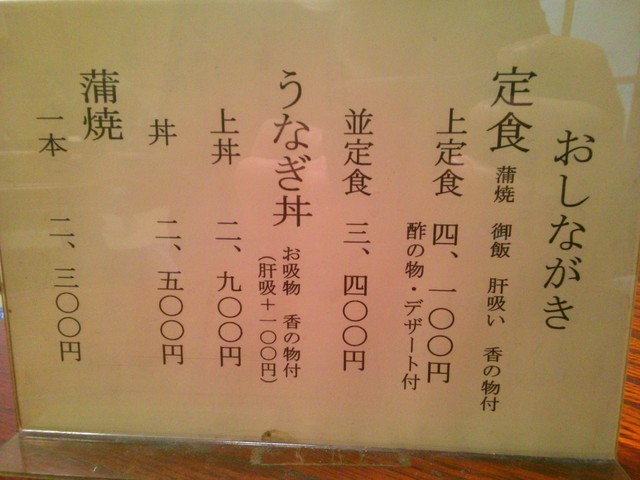 おしながき
定食 蒲焼 御飯 肝吸い 香の物付
上定食 四、一〇〇円
酢の物・デザート付
並定食 三、四〇〇円
うなぎ丼 お吸物 香の物付
(肝吸+一〇〇円)
上丼 二、九〇〇円
丼 二、五〇〇円
蒲焼
一本 二、三〇〇円